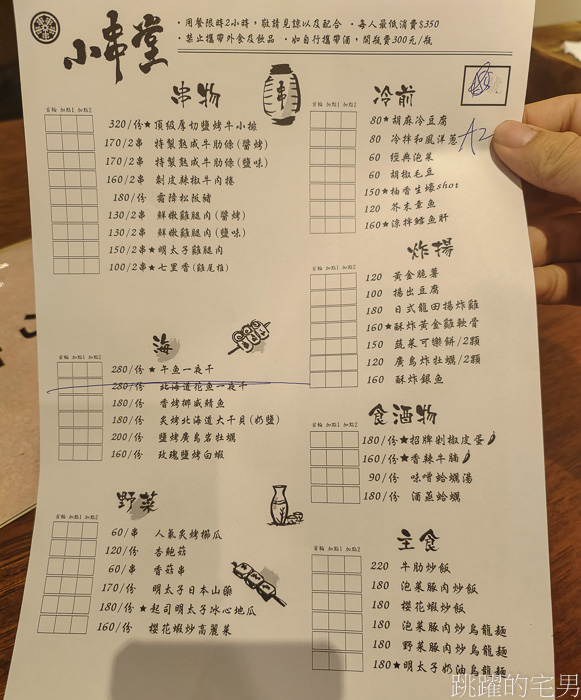 小串堂
・用餐限時2小時，敬請見諒以及配合 ・每人最低消費$350
・禁止攜帶外食及飲品 ・如自行攜帶酒，開瓶費300元/瓶
串物
首輪 加點1 加點2
320/份★頂級厚切鹽烤牛小排
170/2串 特製熟成牛肋條(醬烤)
170/2串 特製熟成牛肋條(鹽味)
160/2串 剝皮辣椒牛肉捲
180/份 霜降松阪豬
130/2串 鮮嫩雞腿肉(醬烤)
130/2串 鮮嫩雞腿肉(鹽味)
150/2串★明太子雞腿肉
100/2串★七里香(雞尾椎)
海
首輪 加點1 加點2
280/份 ★午魚一夜干
280/份 北海道花魚一夜干
180/份 香烤挪威鯖魚
180/份 炙烤北海道大干貝(奶鹽)
200/份 鹽烤廣島岩牡蠣
160/份 玫瑰鹽烤白蝦
野菜
首輪 加點1 加點2
60/串 人氣炙烤櫛瓜
120/份 杏鮑菇
60/串 香菇串
170/份 明太子日本山藥
180/份★起司明太子冰心地瓜
160/份 櫻花蝦炒高麗菜
串
冷前
首輪 加點1 加點2
A2
80★胡麻冷豆腐
80 冷拌和風洋蔥
60 經典泡菜
60 胡椒毛豆
150★柚香生蠔shot
120 芥末章魚
160★涼拌鱈魚肝
炸揚
首輪 加點1 加點2
120 黃金脆薯
100 揚出豆腐
180 日式龍田揚炸雞
160★酥炸黃金雞軟骨
150 蔬菜可樂餅/2顆
120 廣島炸牡蠣/2顆
160 酥炸銀魚
食酒物
首輪 加點1 加點2
180/份★招牌剁椒皮蛋
160/份★香辣牛腩
90/份 味噌蛤蠣湯
180/份 酒蒸蛤蠣
主食
首輪 加點1 加點2
220 牛肋炒飯
180 泡菜豚肉炒飯
180 櫻花蝦炒飯
180 泡菜豚肉炒烏龍麵
180 野菜豚肉炒烏龍麵
180★明太子奶油烏龍麵
跳躍的宅男